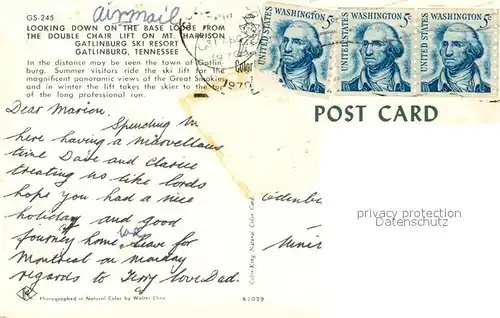 GS-245
airmail
LOOKING DOWN ON THE BASE LODGE FROM
THE DOUBLE CHAIR LIFT ON MT. HARRISON
GATLINBURG SKI RESORT
GATLINBURG, TENNESSEE
In the distance may be seen the town of Gatlin-
burg. Summer visitors ride the ski lift for the
magnificent panoramic views of the Great Smokies
and in winter the lift takes the skier to the
of the long professional run.
Dear Marion.
Spending
here having a marvellous
time Dave and Clarice
treating us like lords
hope you had a nice
holiday and good
journey home we leave for
Montreal on monday
regards to Terry love Dad.
Photographed in Natural Color by Walter Cline
61029
Natural Color Card
1970
UNITED STATES WASHINGTON 5c
UNITED STATES WASHINGTON 5c
UNITED STATES WASHINGTON 5c
POST CARD
privacy protection
Datenschutz